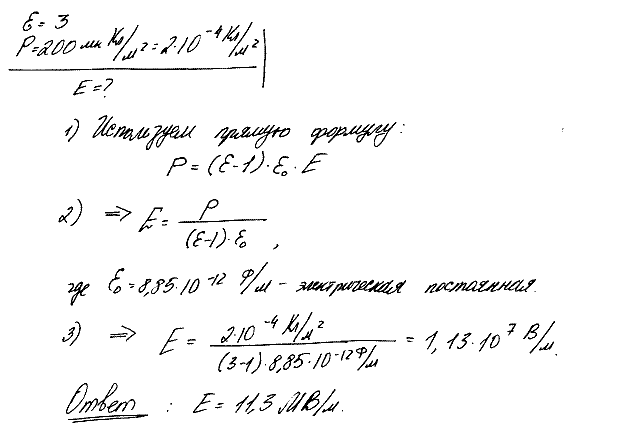 ε = 3
P = 200 мк Кл/м² = 2·10⁻⁴ Кл/м²
E = ?
1) Используем прямую формулу:
P = (ε-1)·ε₀·E
2) => E = P/((ε-1)·ε₀),
где ε₀ = 8,85·10⁻¹² Ф/м - электрическая постоянная.
3) => E = (2·10⁻⁴ Кл/м²)/((3-1)·8,85·10⁻¹² Ф/м) = 1,13·10⁷ В/м.
Ответ: E = 11,3 МВ/м.